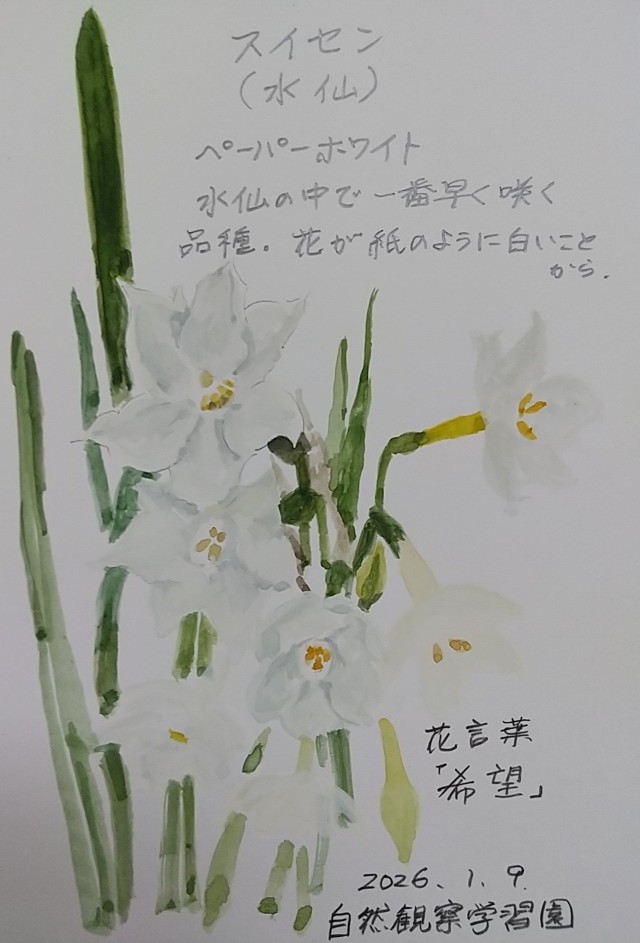 スイセン
(水仙)
ペーパーホワイト
水仙の中で一番早く咲く
品種。花が紙のように白いこと
から.
花言葉
「希望」
2026.1.9.
自然観察学習園